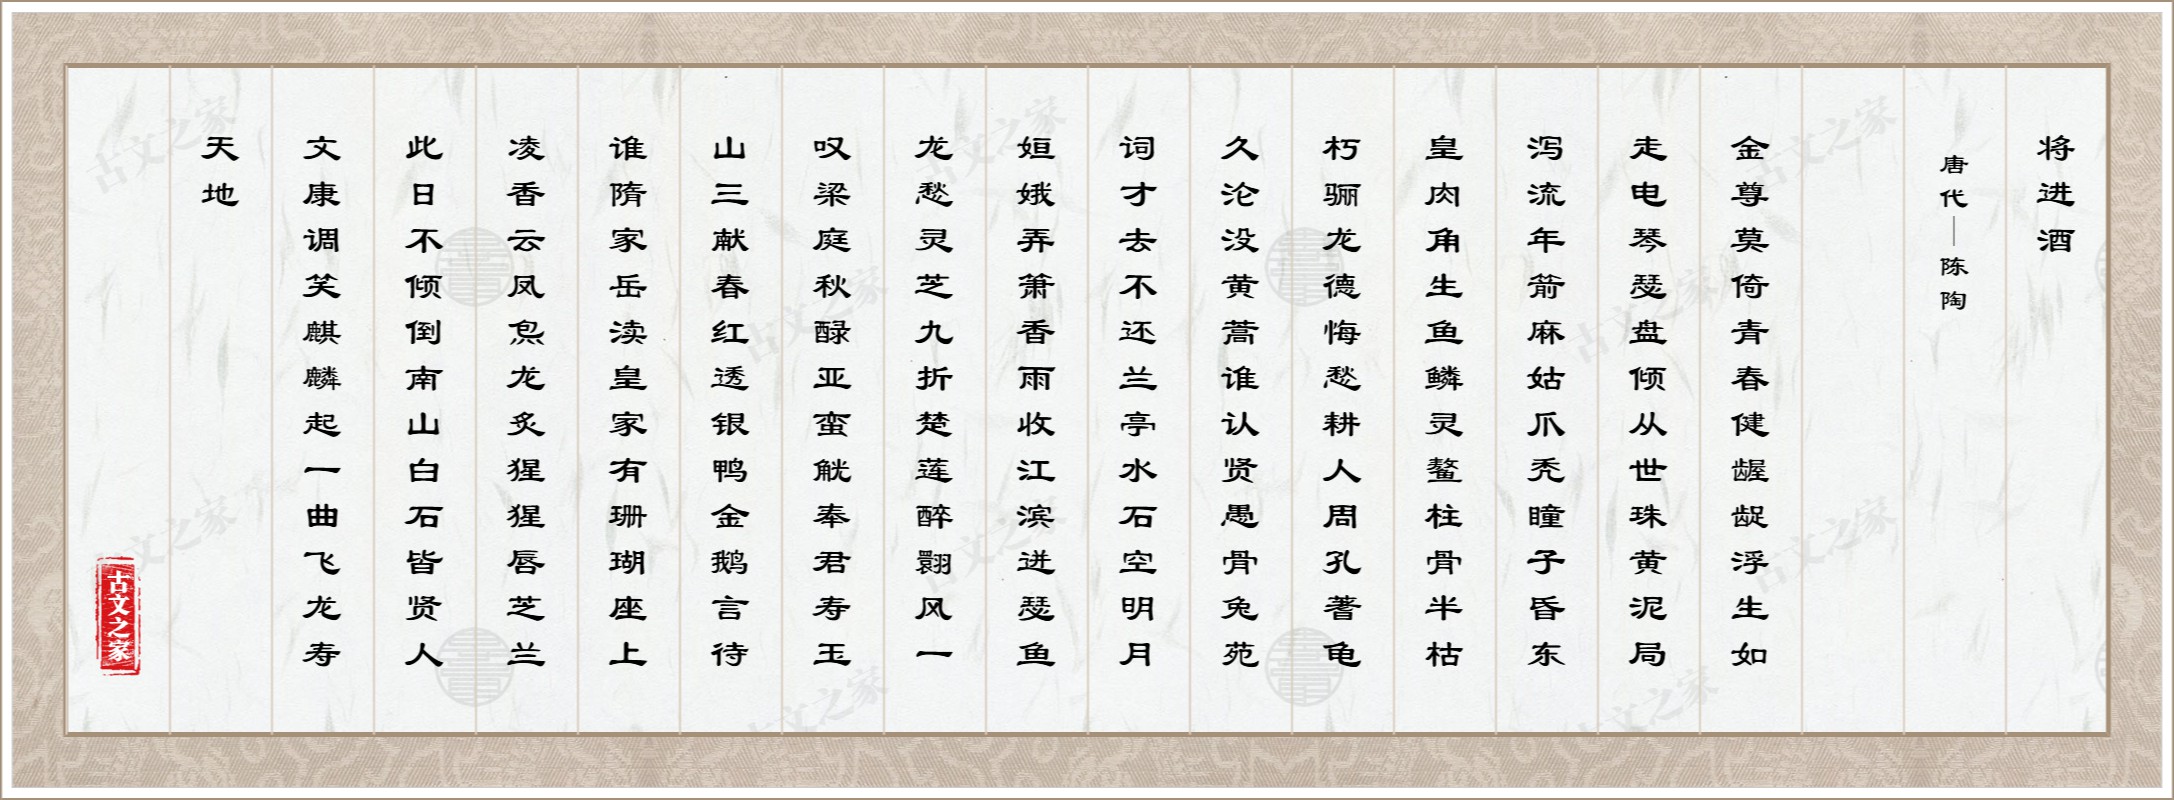 将进酒
唐代—陈陶
金尊莫倚青春健龌龊浮生如
走电琴瑟盘倾从世珠黄泥局
泻流年箭麻姑爪秃瞳子昏东
皇肉角生鱼鳞灵鳌柱骨半枯
朽骊龙德悔愁耕人周孔蓍龟
久沦没黄蒿谁认贤愚骨兔苑
词才去不还兰亭水石空明月
姮娥弄箫香雨收江滨迸瑟鱼
龙愁灵芝九折楚莲醉翾风一
叹梁庭秋醁亚蛮觥奉君寿玉
山三献春红透银鸭金鹅言待
谁隋家岳渎皇家有珊瑚座上
凌香云凤炰龙炙猩猩唇芝兰
此日不倾倒南山白石皆贤人
文康调笑麒麟起一曲飞龙寿
天地
古文之家